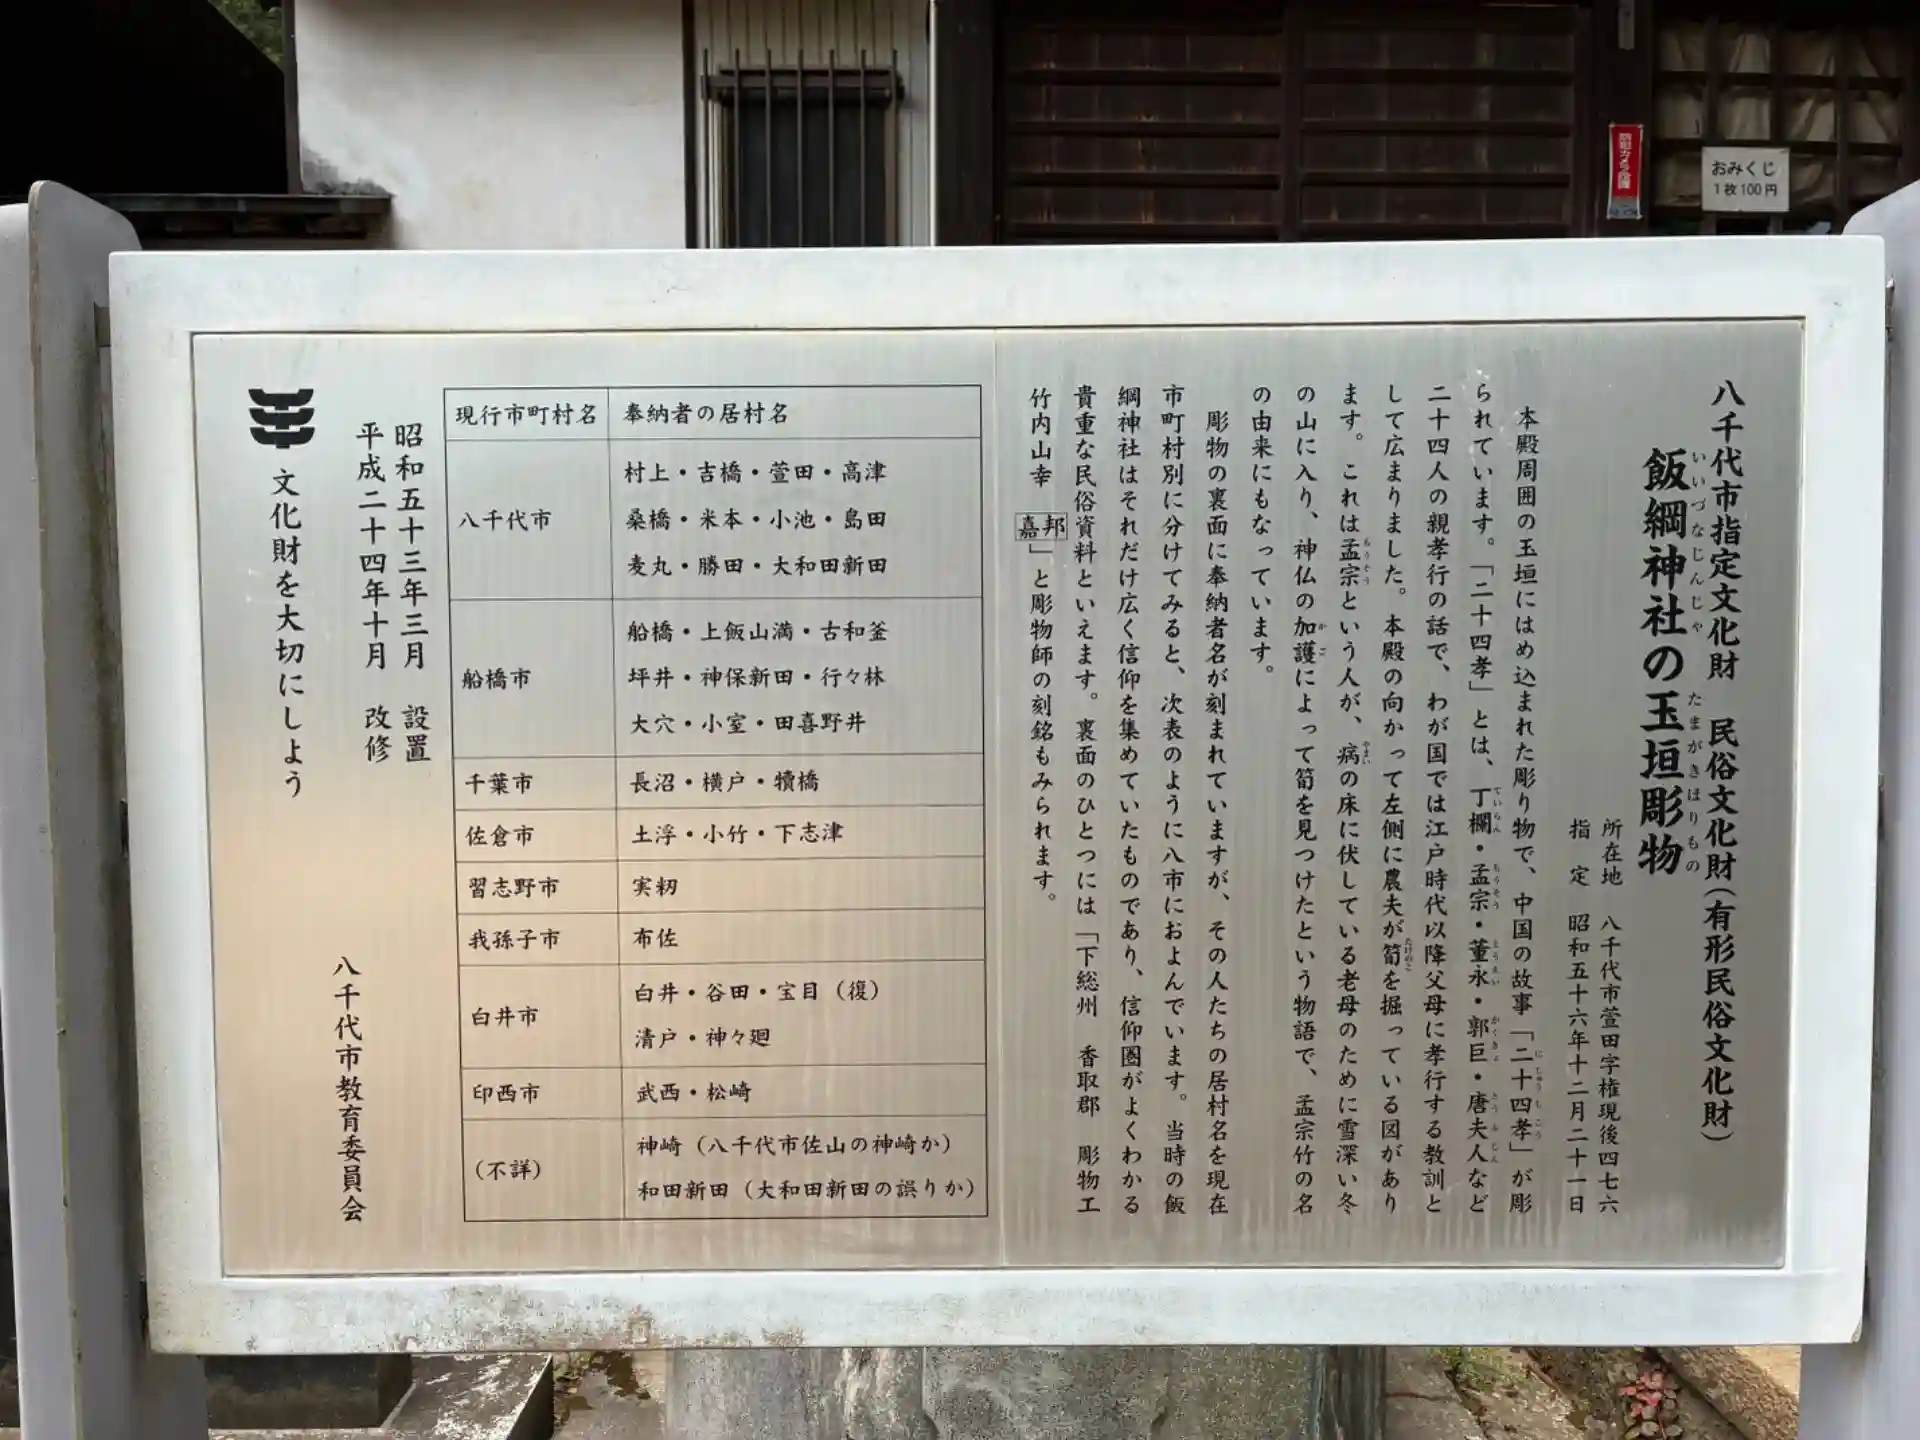 おみくじ
1枚100円
八千代市指定文化財　民俗文化財（有形民俗文化財）
飯綱神社の玉垣彫物
いいづなじんじゃ　たまがきほりもの
所在地　八千代市萱田字権現後四七六
指　定　昭和五十六年十二月二十一日
本殿周囲の玉垣にはめ込まれた彫り物で、中国の故事「二十四孝」が彫
にじゅうしこう
られています。「二十四孝」とは、丁欄・孟宗・董永・郭巨・唐夫人など
ていらん　もうそう　とうえい　かくきょ　とうふじん
二十四人の親孝行の話で、わが国では江戸時代以降父母に孝行する教訓と
して広まりました。本殿の向かって左側に農夫が筍を掘っている図があり
たけのこ
ます。これは孟宗という人が、病の床に伏している老母のために雪深い冬
もうそう　やまい
の山に入り、神仏の加護によって筍を見つけたという物語で、孟宗竹の名
かご
の由来にもなっています。
彫物の裏面に奉納者名が刻まれていますが、その人たちの居村名を現在
市町村別に分けてみると、次表のように八市におよんでいます。当時の飯
綱神社はそれだけ広く信仰を集めていたものであり、信仰圏がよくわかる
貴重な民俗資料といえます。裏面のひとつには「下総州　香取郡　彫物工
竹内山幸　嘉邦」と彫物師の刻銘もみられます。
現行市町村名　奉納者の居村名
八千代市　村上・吉橋・萱田・高津
桑橋・米本・小池・島田
麦丸・勝田・大和田新田
船橋市　船橋・上飯山満・古和釜
坪井・神保新田・行々林
大穴・小室・田喜野井
千葉市　長沼・横戸・犢橋
佐倉市　土浮・小竹・下志津
習志野市　実籾
我孫子市　布佐
白井市　白井・谷田・宝目（復）
清戸・神々廻
印西市　武西・松崎
（不詳）　神崎（八千代市佐山の神崎か）
和田新田（大和田新田の誤りか）
昭和五十三年三月　設置
平成二十四年十月　改修
八千代市教育委員会
文化財を大切にしよう